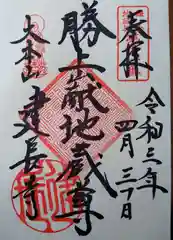 奉拝
令和三年
四月三日
勝上嶽地蔵尊
大本山
建長寺